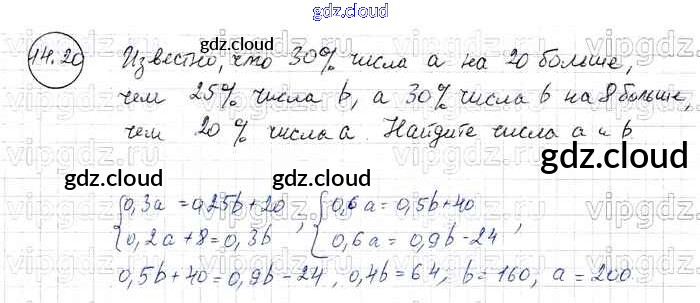 gdz.cloud
14.20 Известно, что 30% числа a на 20 больше,
чем 25% числа b, а 30% числа b на 8 больше,
чем 20% числа a. Найдите числа a и b
gdz.cloud
gdz.cloud
gdz.cloud
gdz.cloud
gdz.cloud
{0,3a = 0,25b+20 {0,6a = 0,5b+40
{0,2a+8=0,3b , {0,6a = 0,9b-24 ,
0,5b+40=0,9b-24, 0,4b=64, b=160, a=200.
gdz.cloud
gdz.cloud